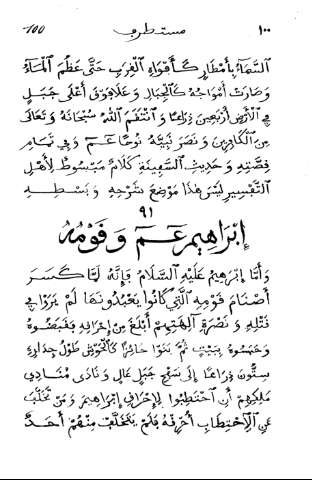 ١٠٠ مستطرف 100
السَّمَاءُ بِأَمْطَارٍ كَأَفْوَاهِ القِرَبِ حَتَّى عَظُمَ الْمَاءُ
وَصَارَتْ أَمْوَاجُهُ كَالجِبَالِ وَعَلَا فَوْقَ أَعْلَى جَبَلٍ
فِي الْأَرْضِ أَرْبَعِينَ ذِرَاعًا وَانْتَقَمَ اللهُ سُبْحَانَهُ وَتَعَالَى
مِنَ الْكَافِرِينَ وَنَصَرَ نَبِيَّهُ نُوحًا عم وَفِي تَمَامِ
قِصَّتِهِ وَحَدِيثِ السَّفِينَةِ كَلَامٌ مَبْسُوطٌ لِأَهْلِ
التَّفْسِيرِ لَيْسَ هَذَا مَوْضِعَ شَرْحِهِ وَبَسْطِهِ
٩١
إِبْرَاهِيمُ عم وَقَوْمُهُ
وَأَمَّا إِبْرَهِيمُ عَلَيْهِ السَّلَامُ فَإِنَّهُ لَمَّا كَسَرَ
أَصْنَامَ قَوْمِهِ الَّتِي كَانُوا يَعْبُدُونَهَا لَمْ يَرَوْا فِي
قَتْلِهِ وَنُصْرَةِ آلِهَتِهِمْ أَبْلَغَ مِنْ إِحْرَاقِهِ فَقَبَضُوهُ
وَحَبَسُوهُ بِبَيْتٍ ثُمَّ بَنَوْا حَائِرًا كَالْحَوْشِ طُولُ جِدَارِهِ
سِتُّونَ ذِرَاعًا إِلَى سَفْحِ جَبَلٍ عَالٍ وَنَادَى مُنَادِي
مَلِكِهِمْ أَنِ احْتَطِبُوا لِإِحْرَاقِ إِبْرَاهِيمَ وَمَنْ تَخَلَّفَ
عَنِ الْاِحْتِطَابِ أَحْرَقَهُ فَلَمْ يَتَخَلَّفْ مِنْهُمْ أَحَدٌ